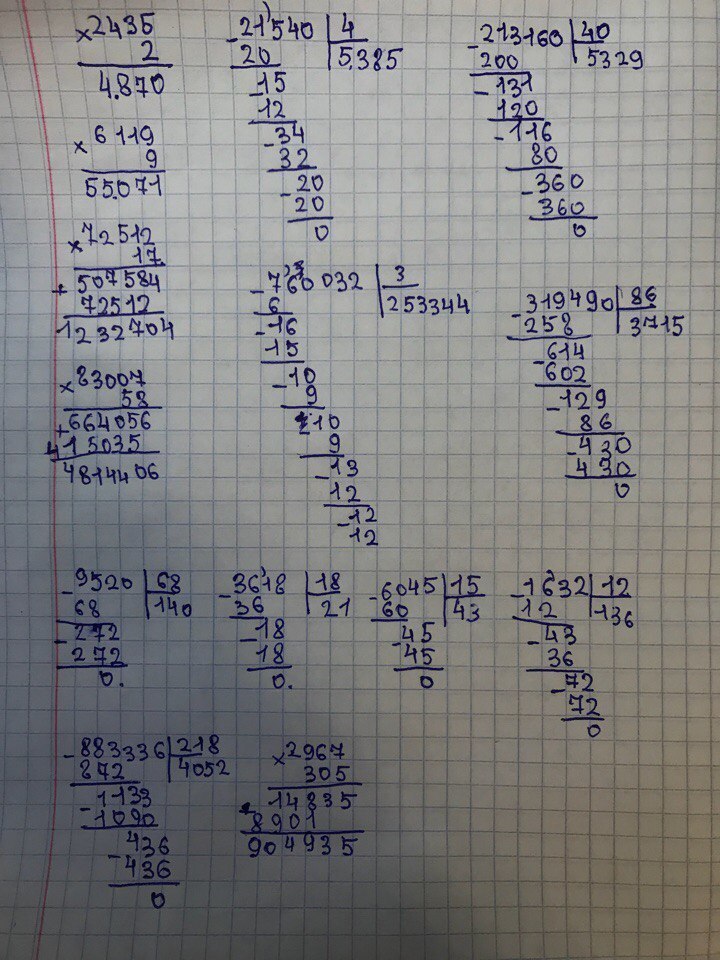 ×2435
2
4.870
×6119
9
55.071
×72512
17
+507584
72512
1232704
×83007
58
+664056
415035
4814406
-21540 4
20 5.385
-15
12
-34
32
-20
20
0
-213160 40
200 5329
-131
120
-116
80
-360
360
0
-760032 3
6 253344
-16
15
-10
9
-10
9
-13
12
-12
12
-319490 86
258 3715
-614
602
-129
86
-430
430
0
-9520 68
68 140
-272
272
0.
-3618 18
36 21
-18
18
0.
-6045 15
60 43
-45
45
0
-1632 12
12 136
-43
36
-72
72
0
-883336 218
872 4052
-1133
-1090
-436
436
0
×2967
305
+14835
8901
904935